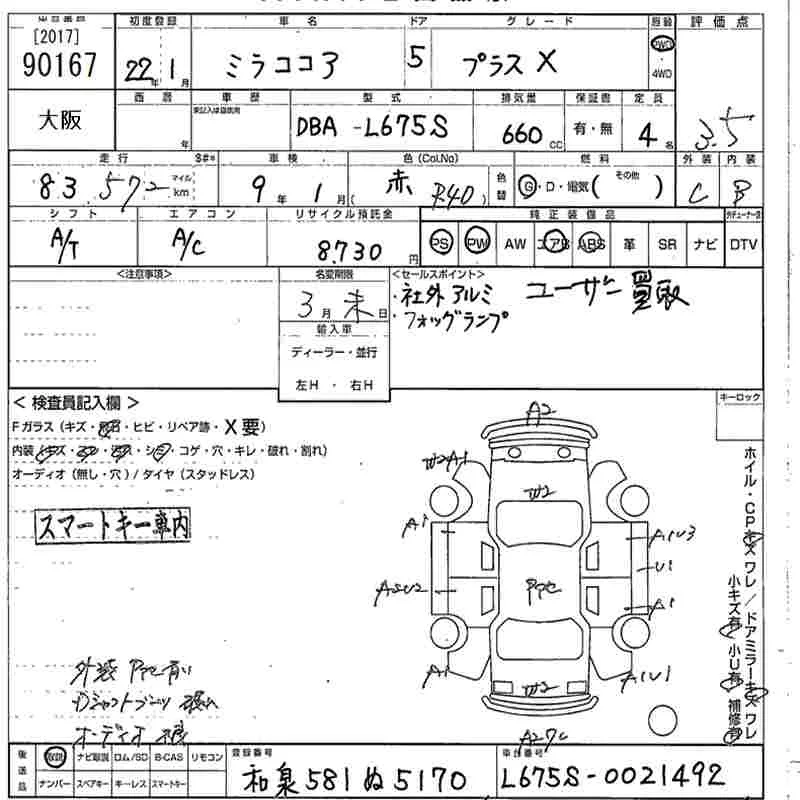 初度登録 車名 ドア グレード 評価点
[2017]
90167 22年 1月 ミラココア 5 プラス X 2WD 4WD
大阪 西暦 車歴 型式 排気量 保証書 定員
年 DBA -L675S 660 cc 有・無 4名 3.5
走行 車検 色(Col.No) 燃料 外装 内装
83,572 マイル km 9年 1月 赤 R40 色替 G・D・電気( その他 ) C B
シフト エアコン リサイクル預託金 純正装備品
A/T A/C 8,730円 PS PW AW エアB ABS 革 SR ナビ DTV
<注意事項> 名変期限 <セールスポイント>
3月 末日 ・社外アルミ ユーザー買取
・フォッグランプ
輸入車
ディーラー・並行
左H・右H
< 検査員記入欄 > キーロック
Fガラス(キズ・・ヒビ・リペア跡・X要)
内装(キズ・・・・コゲ・穴・キレ・破れ・割れ)
オーディオ(無し・穴)/タイヤ(スタッドレス)
スマートキー車内
A2
W2A1
W2
A1 A1U3
U1
A2U2 A1
A1 A1U1
W2
ホイル・CPキズ ワレ/ドアミラーキズ ワレ
小キズ有 小U有 補修有
外装
オーディオ
後送品 取説 ナビ取説 ロム/SD B-CAS リモコン
ナンバー スペアキー キーレス スマートキー
登録番号 和泉 581 ぬ 5170
車台番号 L675S-0021492